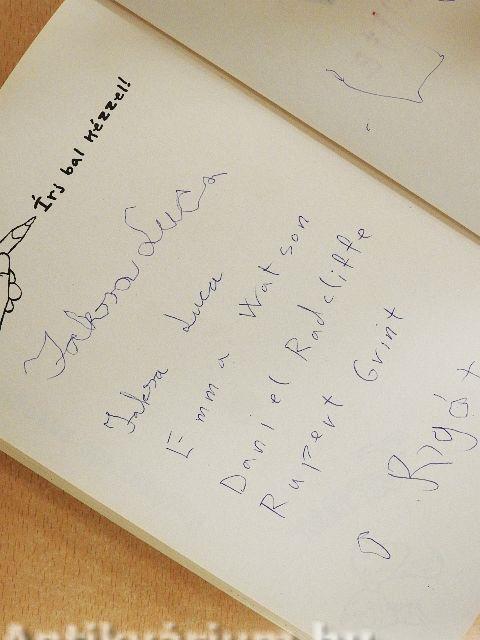 Írj bal kézzel!
Jaksa Luca
Jaksa Luca
Emma Watson
Daniel Radcliffe
Rupert Grint
Rigó
Antikvárium.hu